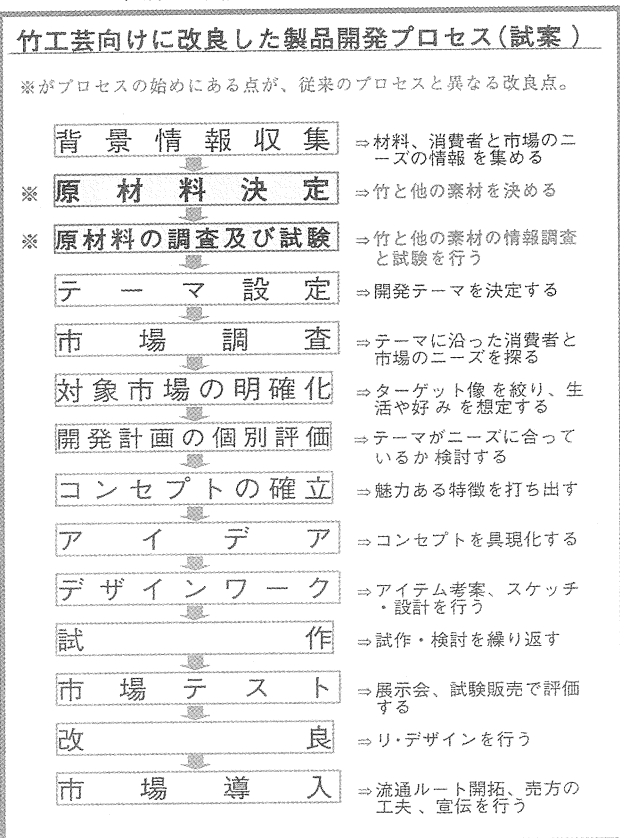 竹工芸向けに改良した製品開発プロセス(試案)
※がプロセスの始めにある点が、従来のプロセスと異なる改良点。
背景情報収集 ⇒材料、消費者と市場のニ
ーズの情報を集める
※ 原材料決定 ⇒竹と他の素材を決める
※ 原材料の調査及び試験 ⇒竹と他の素材の情報調査
と試験を行う
テーマ設定 ⇒開発テーマを決定する
市場調査 ⇒テーマに沿った消費者と
市場のニーズを探る
対象市場の明確化 ⇒ターゲット像を絞り、生
活や好みを想定する
開発計画の個別評価 ⇒テーマがニーズに合って
いるか検討する
コンセプトの確立 ⇒魅力ある特徴を打ち出す
アイデア ⇒コンセプトを具現化する
デザインワーク ⇒アイテム考案、スケッチ
・設計を行う
試作 ⇒試作・検討を繰り返す
市場テスト ⇒展示会、試験販売で評価
する
改良 ⇒リ・デザインを行う
市場導入 ⇒流通ルート開拓、売方の
工夫、宣伝を行う